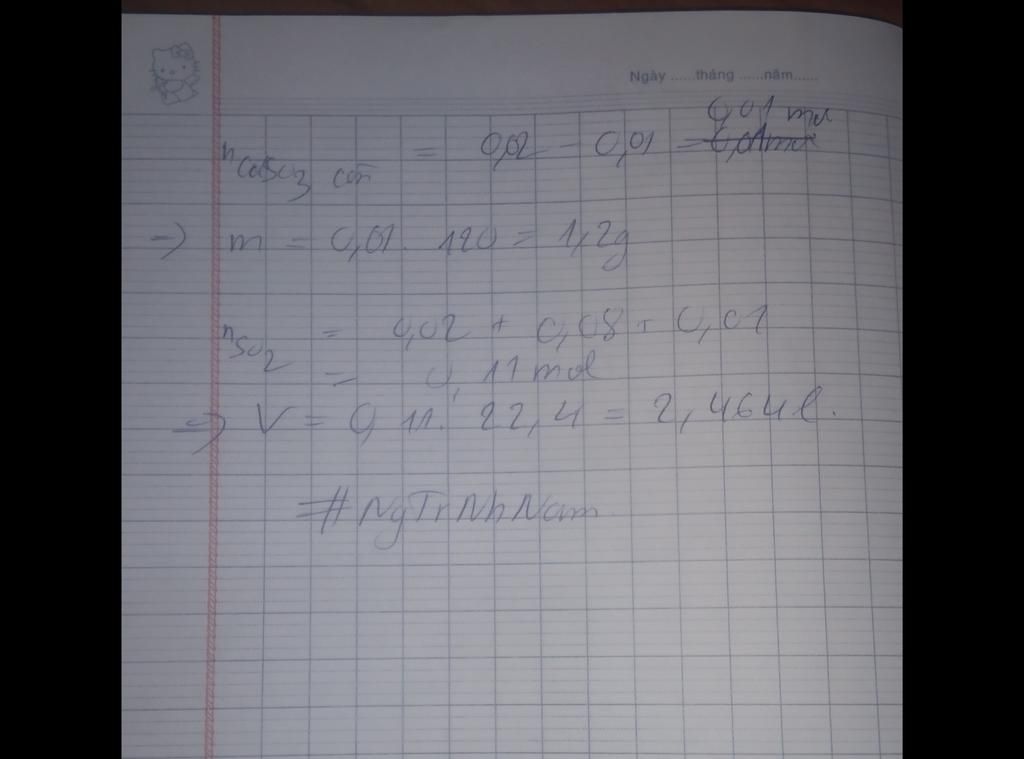 Ngày ......tháng ......năm......
nCaSO3 còn = 0,02 - 0,01 = 0,01 mol
=> m = 0,01. 120 = 1,2g
nSO2 = 0,02 + 0,08 + 0,01
= 0,11 mol
=> V = 0,11. 22,4 = 2,464l.
#NgTrNhNam